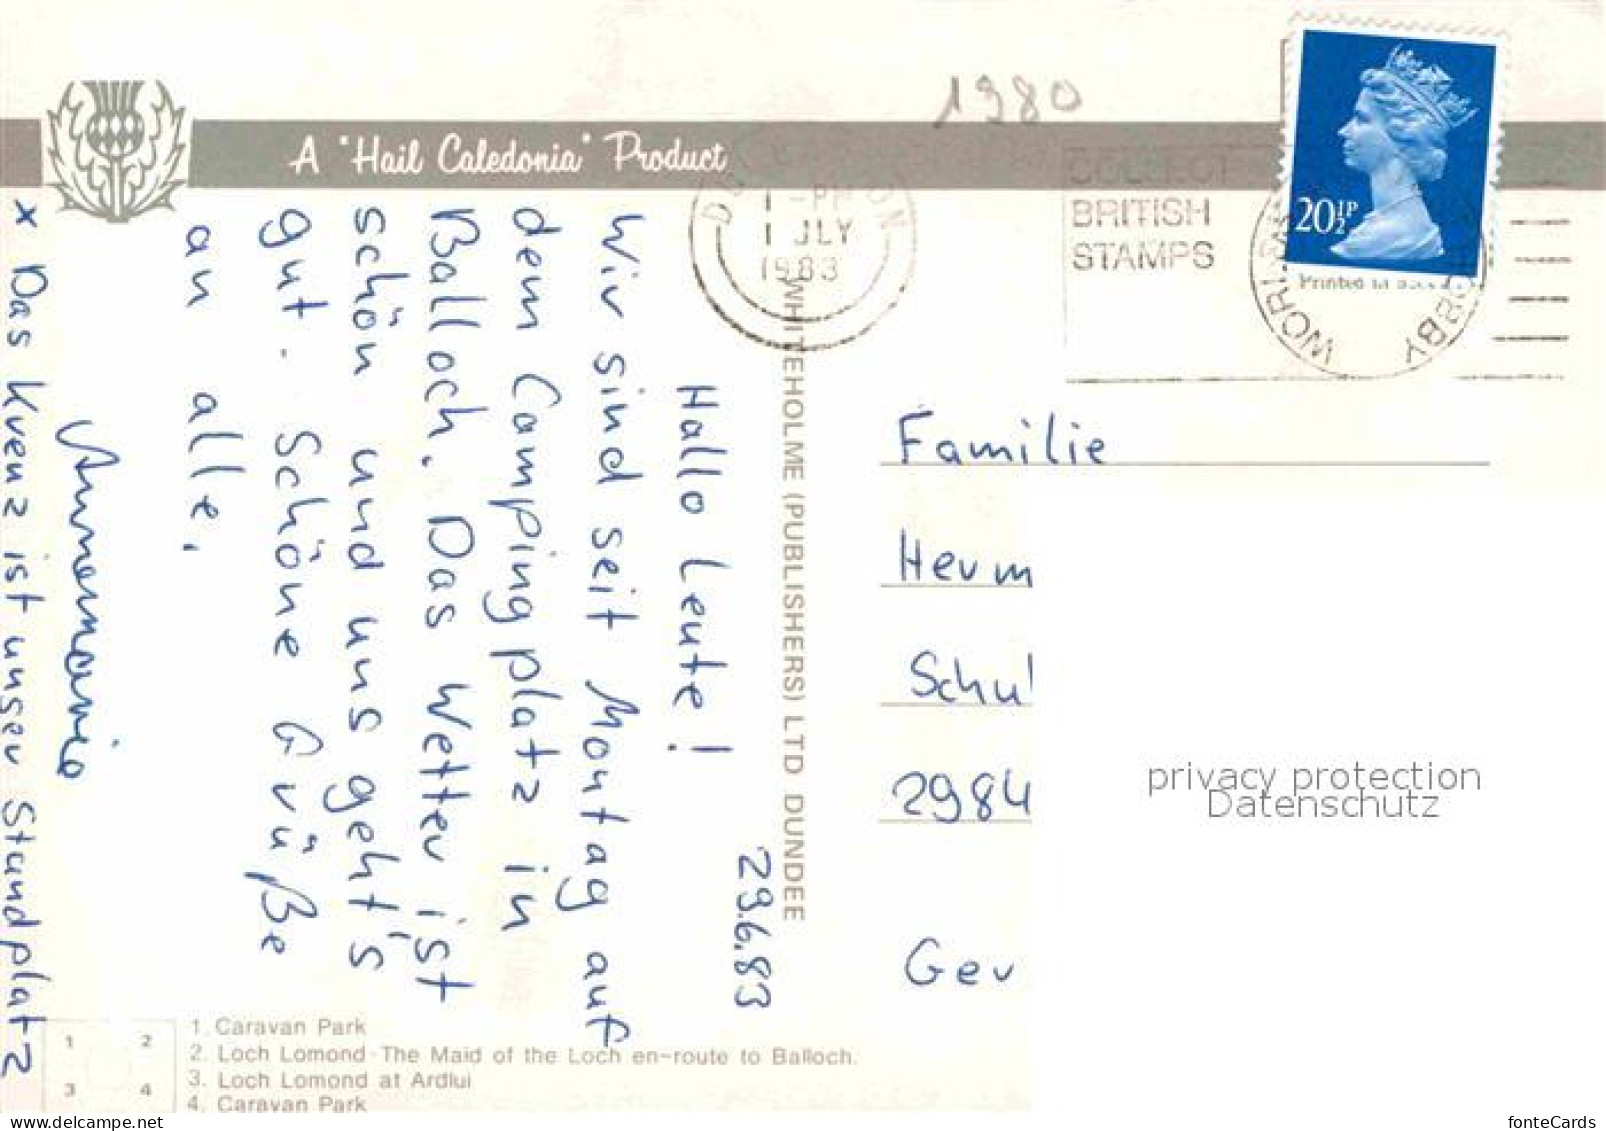 1980
A "Hail Caledonia" Product
1 -PM
1 JLY
1983
COLLECT
BRITISH
STAMPS
20½P
WORL
BBY
29.6.83
Hallo Leute!
Wir sind seit Montag auf
dem Campingplatz in
Balloch. Das Wetter ist
schön und uns geht's
gut. Schöne Grüße
an alle,
Annemarie
x Das Kreuz ist unser Standplatz
WHITEHOLME (PUBLISHERS) LTD DUNDEE
Familie
Herm
Schul
2984
Gev
privacy protection
Datenschutz
1 2
3 4
1. Caravan Park
2. Loch Lomond - The Maid of the Loch en-route to Balloch.
3. Loch Lomond at Ardlui
4. Caravan Park
delcampe.net
fonteCards